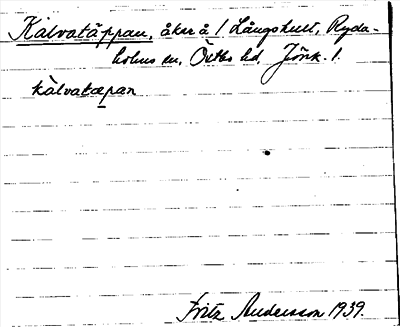 Kalvatäppan, åker å 1 Långshult, Ryda-
holms sn, Östbo hd, Jönk. l.
kàlvatæpan
Fritz Andersson 1939.